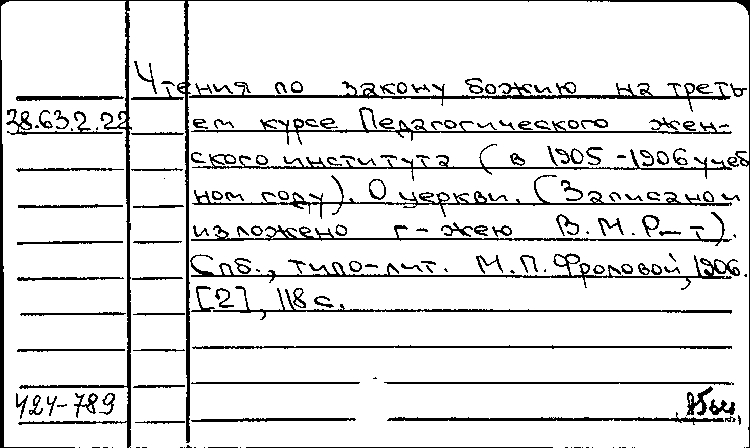 Чтения по закону божию на треть
38.63.2.22 ем курсе Педагогического жен-
ского института (в 1905-1906 учеб
ном году). О церкви. (Записано и
изложено г-жею В.М.Р—т).
Спб., типо-лит. М.П.Фроловой, 1906.
[2], 118 с.
424-789